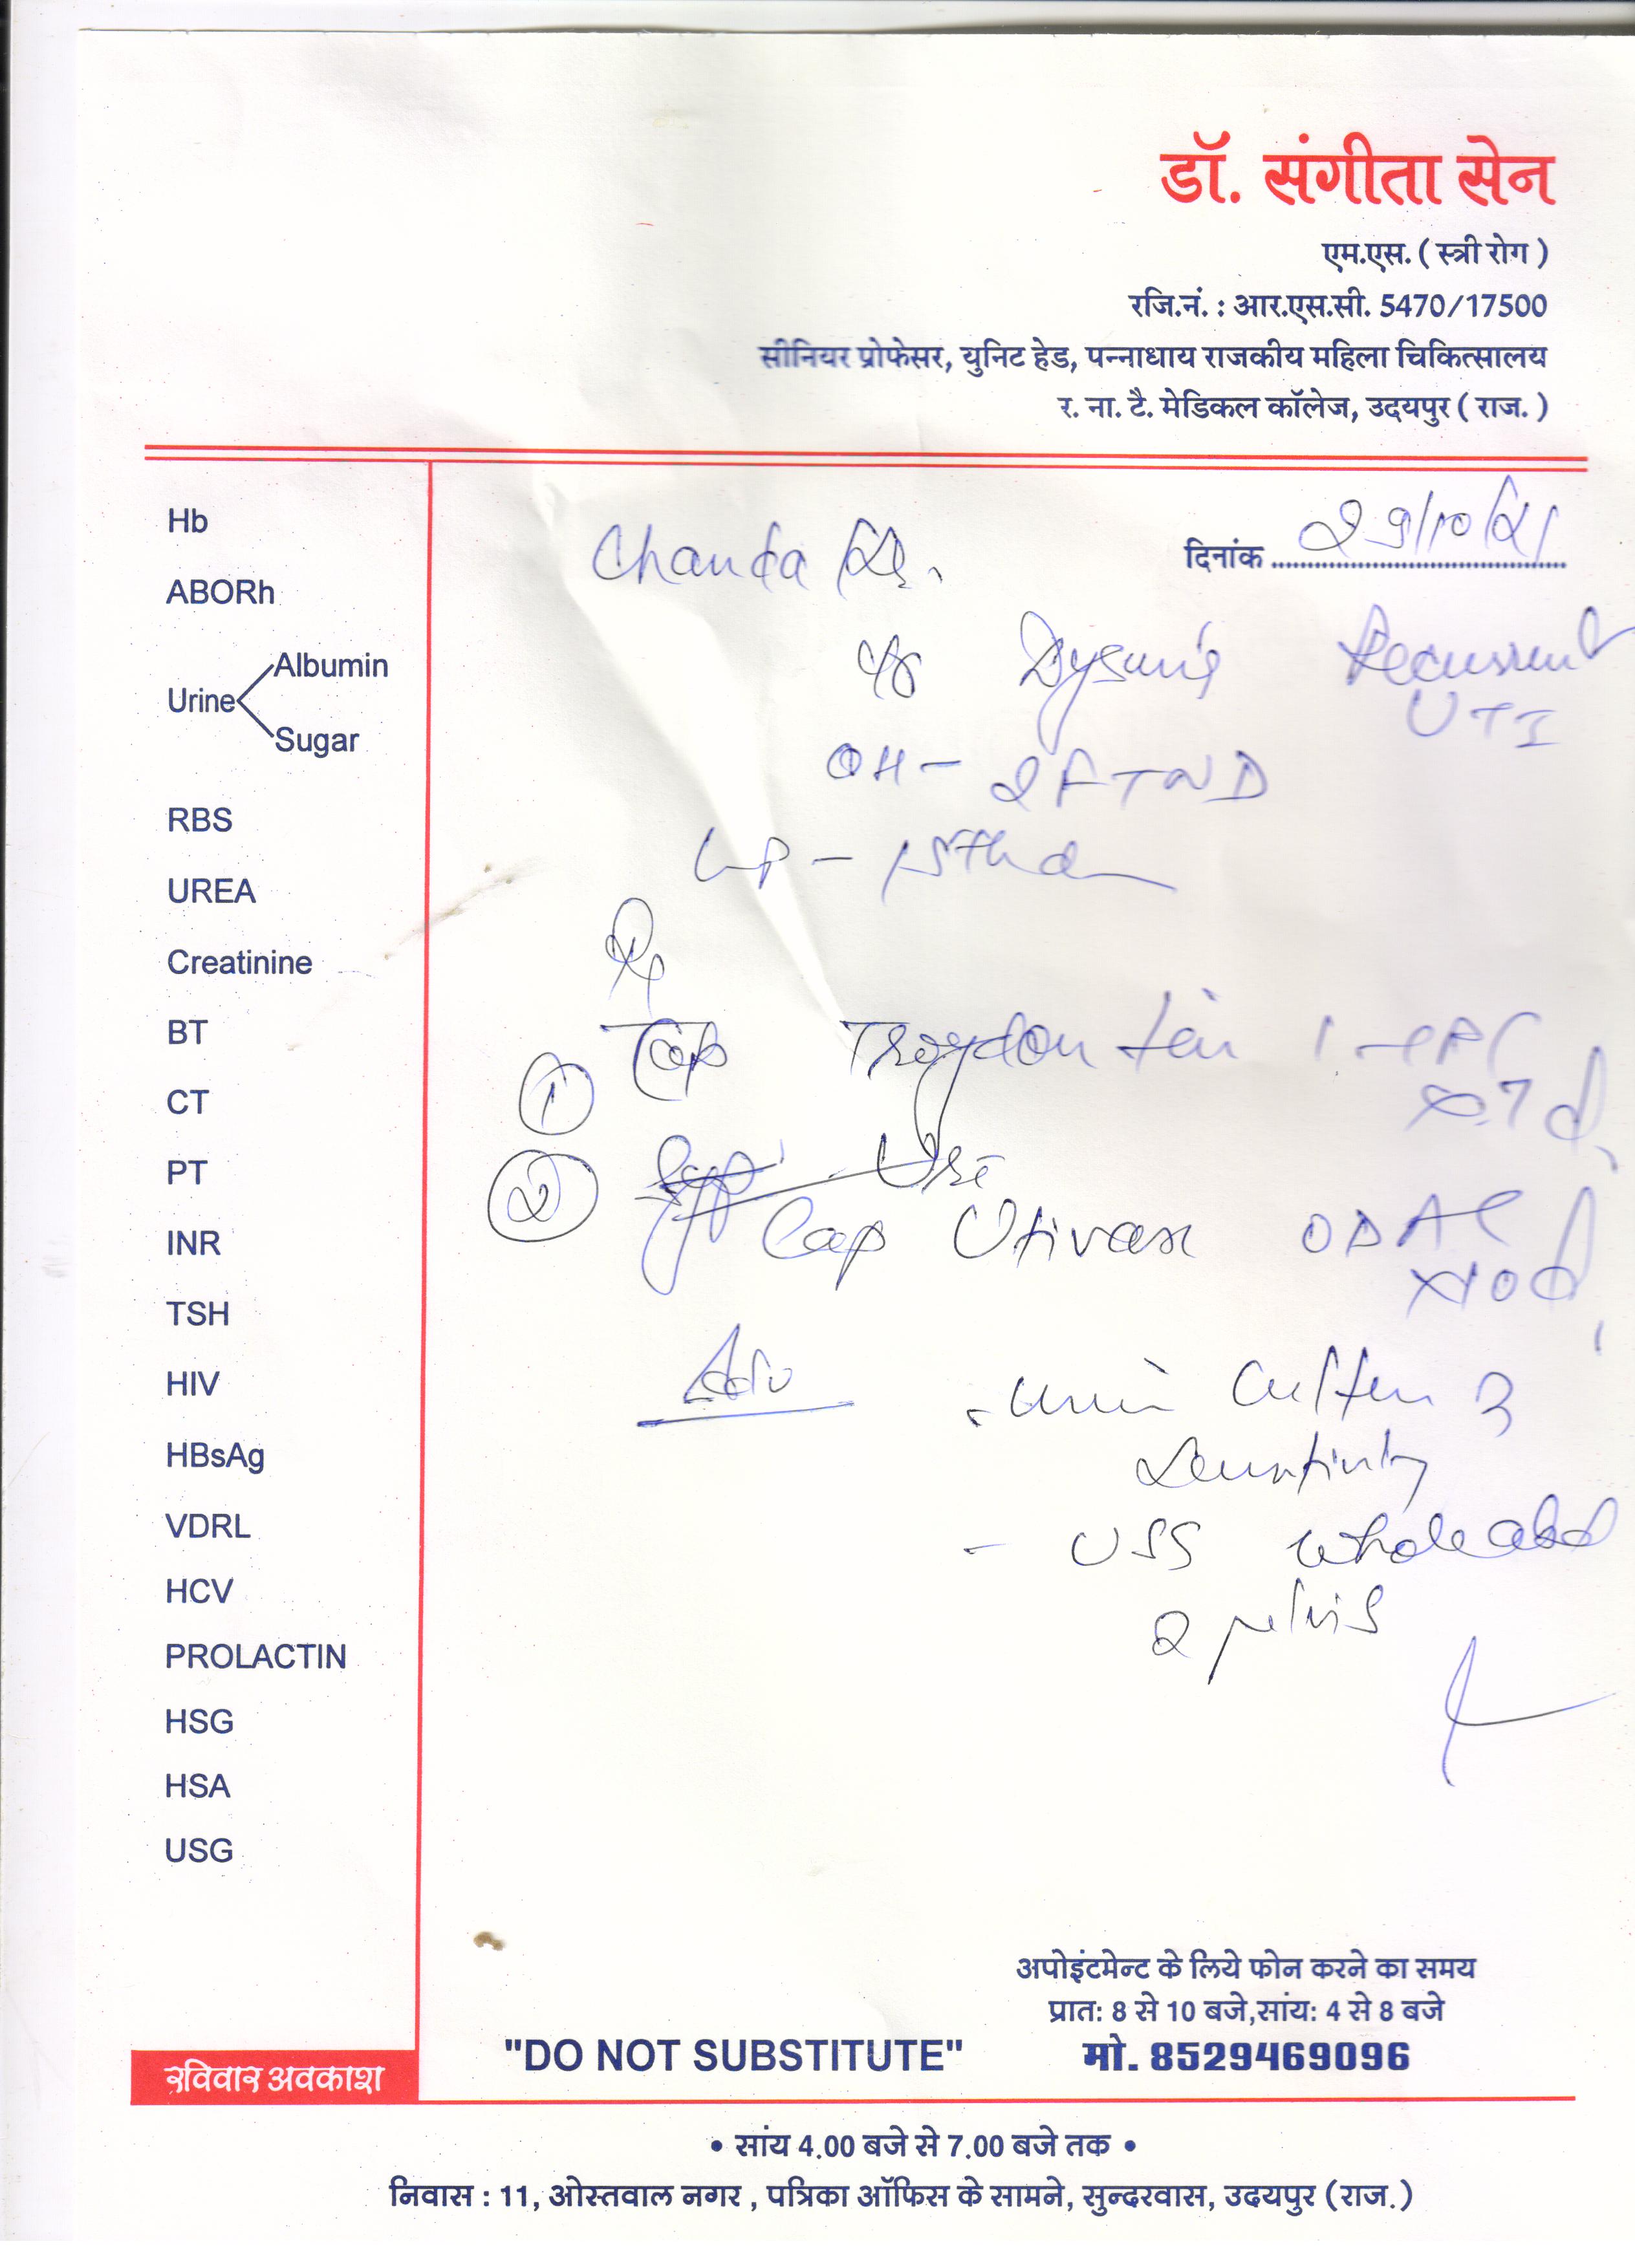 डॉ. संगीता सेन
एम.एस. ( स्त्री रोग )
रजि.नं. : आर.एस.सी. 5470/17500
सीनियर प्रोफेसर, युनिट हेड, पन्नाधाय राजकीय महिला चिकित्सालय
र. ना. टै. मेडिकल कॉलेज, उदयपुर ( राज. )
Hb
ABORh
Urine
Albumin
Sugar
RBS
UREA
Creatinine
BT
CT
PT
INR
TSH
HIV
HBsAg
VDRL
HCV
PROLACTIN
HSG
HSA
USG
रविवार अवकाश
दिनांक 29/10/21
Chanda
Recurrent
UTI
OH - 2 FTND
①
② Cap Utivax OD
x 10 d
Adv
Culture
- whole abd
pelvis
अपोइंटमेन्ट के लिये फोन करने का समय
प्रात: 8 से 10 बजे,सांय: 4 से 8 बजे
"DO NOT SUBSTITUTE" मो. 8529469096
• सांय 4.00 बजे से 7.00 बजे तक •
निवास : 11, ओस्तवाल नगर , पत्रिका ऑफिस के सामने, सुन्दरवास, उदयपुर (राज.)